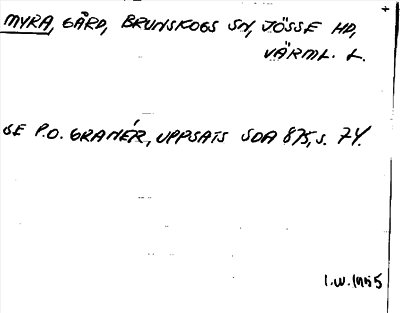 MYRA, GÅRD, BRUNSKOGS SN, JÖSSE HD,
VÄRML. L.
SE P.O. GRANÉR, UPPSATS SDA 875, S. 74.
I.W.